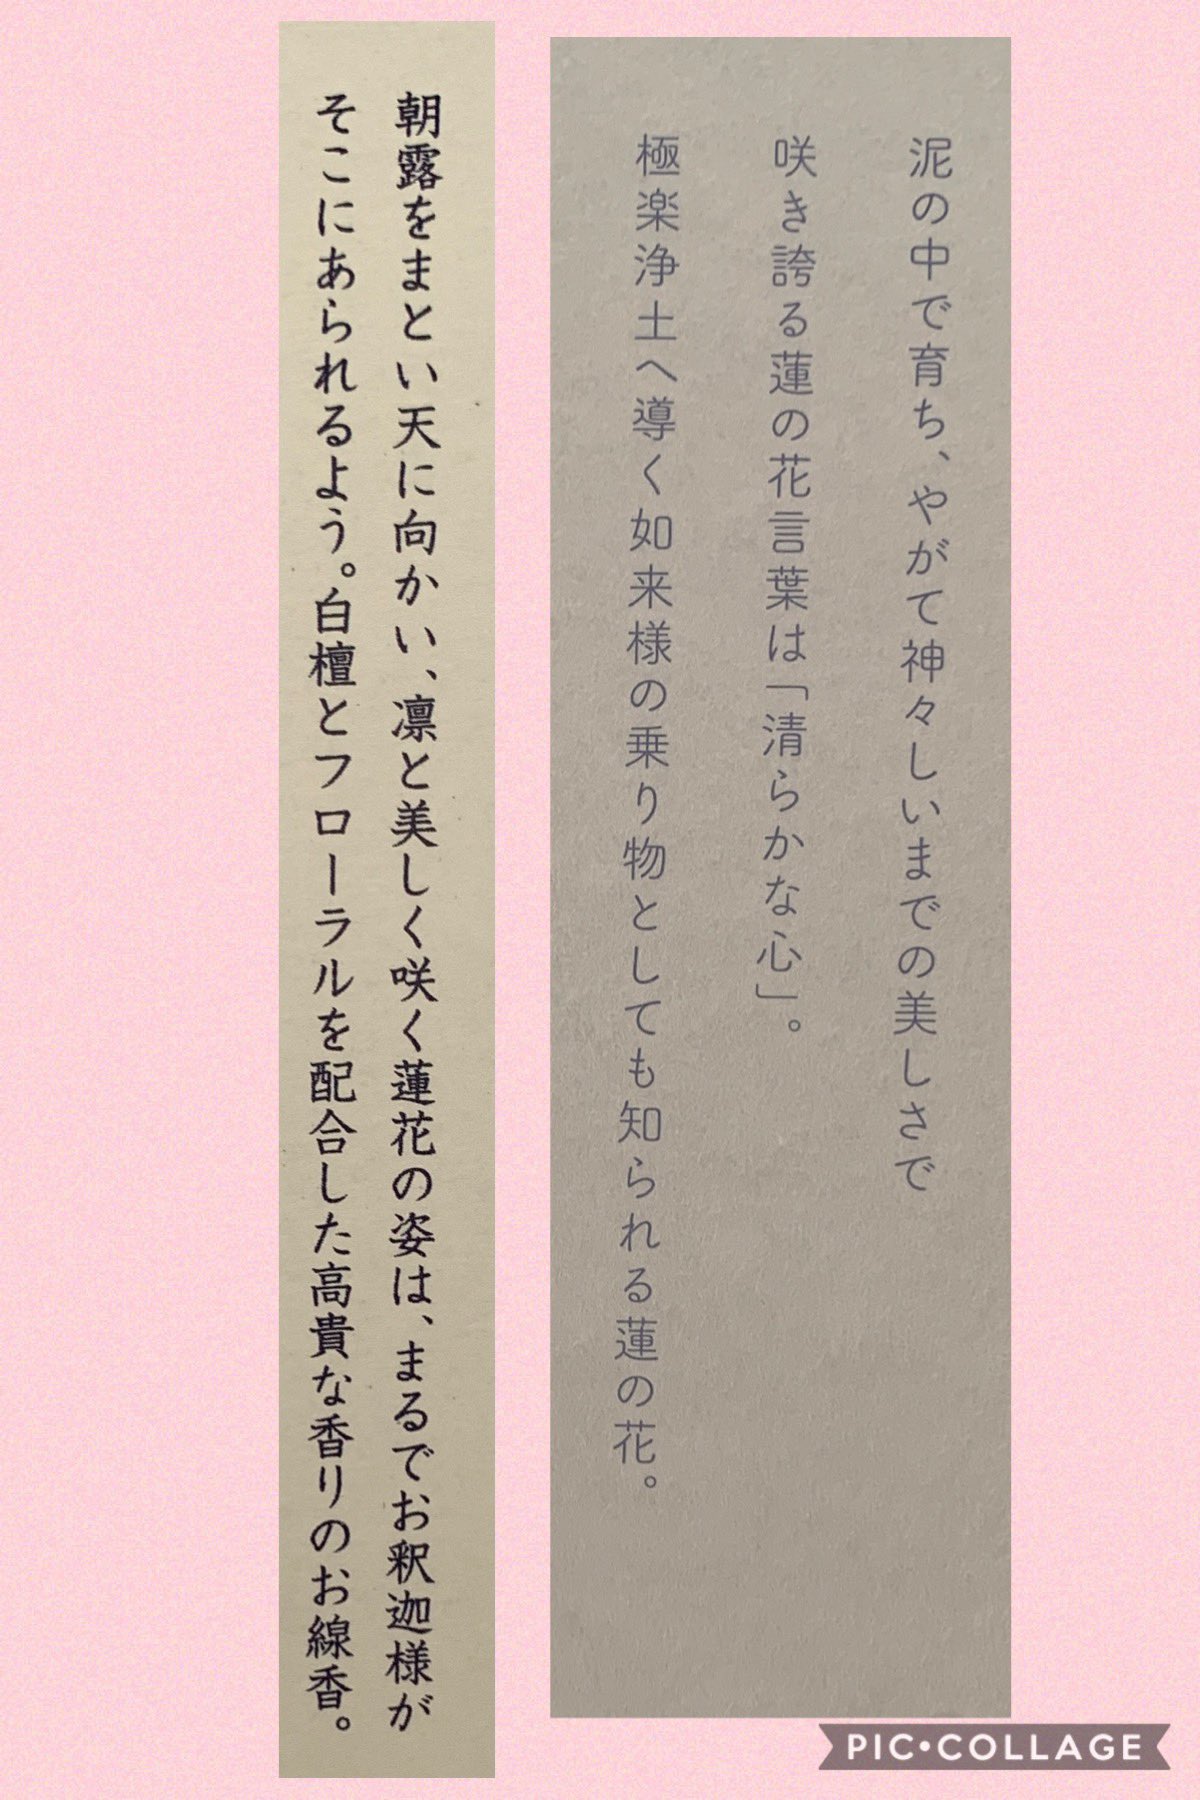 泥の中で育ち、やがて神々しいまでの美しさで
咲き誇る蓮の花言葉は「清らかな心」。
極楽浄土へ導く如来様の乗り物としても知られる蓮の花。
朝露をまとい天に向かい、凛と美しく咲く蓮花の姿は、まるでお釈迦様が
そこにあられるよう。白檀とフローラルを配合した高貴な香りのお線香。
PIC•COLLAGE